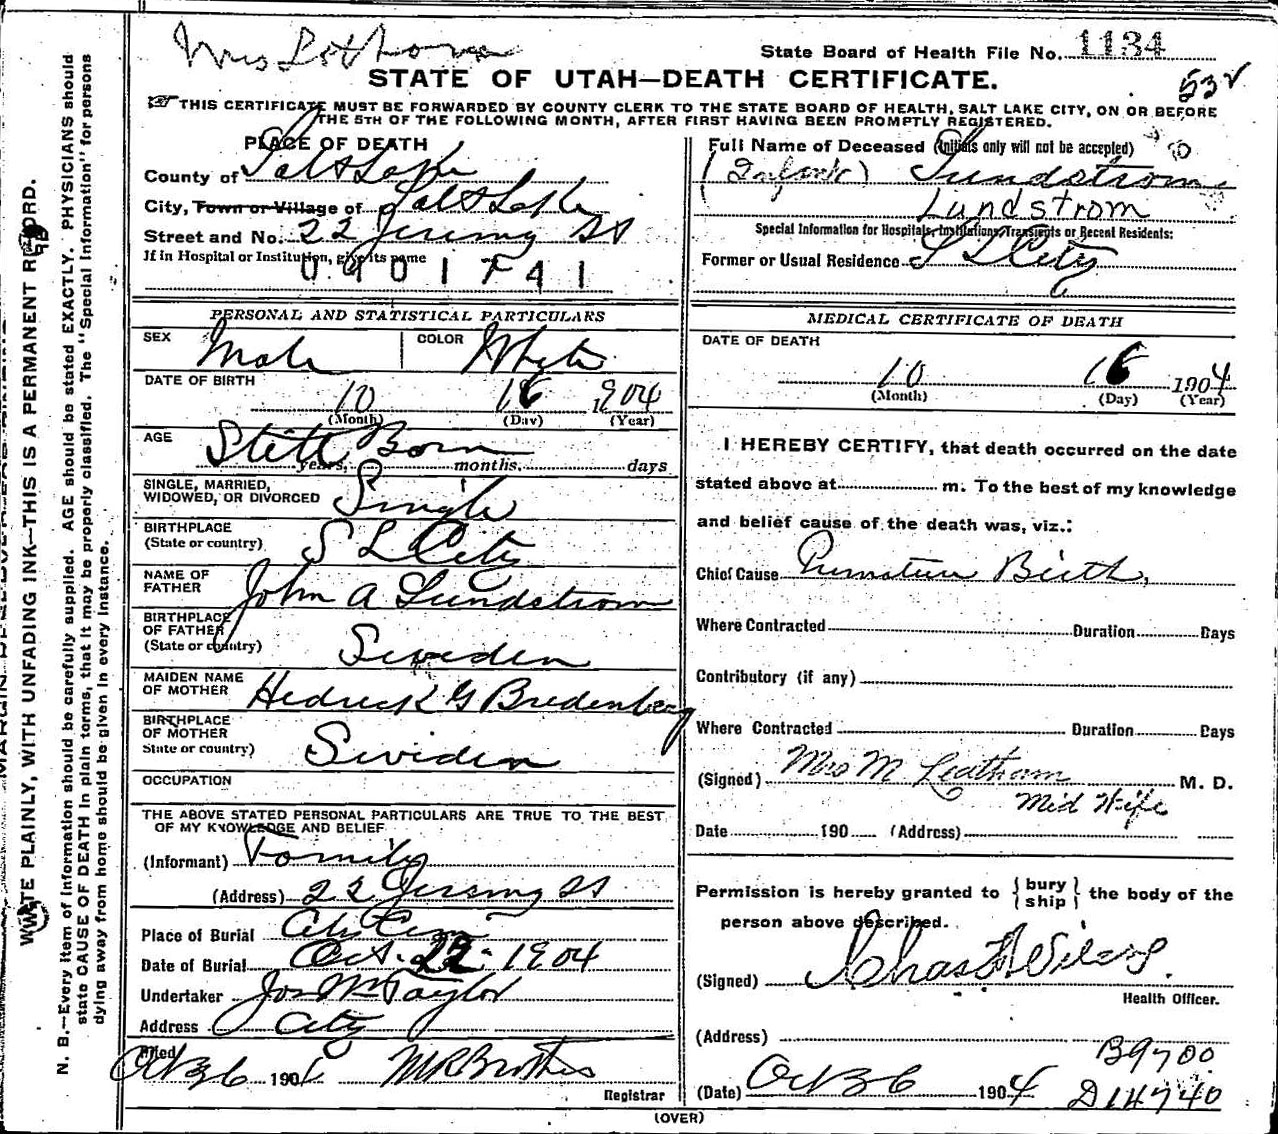 Mrs
State Board of Health File No. 1134
STATE OF UTAH—DEATH CERTIFICATE.
53
THIS CERTIFICATE MUST BE FORWARDED BY COUNTY CLERK TO THE STATE BOARD OF HEALTH, SALT LAKE CITY, ON OR BEFORE
THE 5TH OF THE FOLLOWING MONTH, AFTER FIRST HAVING BEEN PROMPTLY REGISTERED.
PLACE OF DEATH
County of Salt Lake
City, Town or Village of Salt Lake
Street and No. 22 Jeremy St
If in Hospital or Institution, give its name
0401741
Full Name of Deceased (Initials only will not be accepted)
(Infant) Lundstrom
Lundstrom
Special Information for Hospitals, Institutions, Transients or Recent Residents:
Former or Usual Residence S L City
PERSONAL AND STATISTICAL PARTICULARS
SEX Male COLOR White
DATE OF BIRTH
10 904
(Month) (Day) (Year)
AGE Still Born
years, months, days
SINGLE, MARRIED,
WIDOWED, OR DIVORCED Single
BIRTHPLACE
(State or country) S L City
NAME OF
FATHER John A Lundstrom
BIRTHPLACE
OF FATHER
(State or country) Sweden
MAIDEN NAME
OF MOTHER Hedrick G Bredenberg
BIRTHPLACE
OF MOTHER
State or country) Sweden
OCCUPATION
THE ABOVE STATED PERSONAL PARTICULARS ARE TRUE TO THE BEST
OF MY KNOWLEDGE AND BELIEF
(Informant) Family
(Address) 22 Jeremy St
Place of Burial City Cem
Date of Burial Oct. 22 - 1904
Undertaker Jos Wm Taylor
Address City
Filed Oct 26 1904
Registrar
MEDICAL CERTIFICATE OF DEATH
DATE OF DEATH
10 1904
(Month) (Day) (Year)
I HEREBY CERTIFY, that death occurred on the date
stated above at m. To the best of my knowledge
and belief cause of the death was, viz.:
Chief Cause Premature Birth,
Where Contracted Duration Days
Contributory (if any)
Where Contracted Duration Days
(Signed) Mrs M Leatham M. D.
Mid Wife
Date 190 (Address)
Permission is hereby granted to {bury
ship} the body of the
person above described.
(Signed) Chas
Health Officer.
(Address)
B9700
(Date) Oct 26 1904 D14740
(OVER)
WRITE PLAINLY, WITH UNFADING INK—THIS IS A PERMANENT RECORD.
N. B.—Every item of information should be carefully supplied. AGE should be stated EXACTLY. PHYSICIANS should
state CAUSE OF DEATH in plain terms, that it may be properly classified. The "Special Information" for persons
dying away from home should be given in every instance.